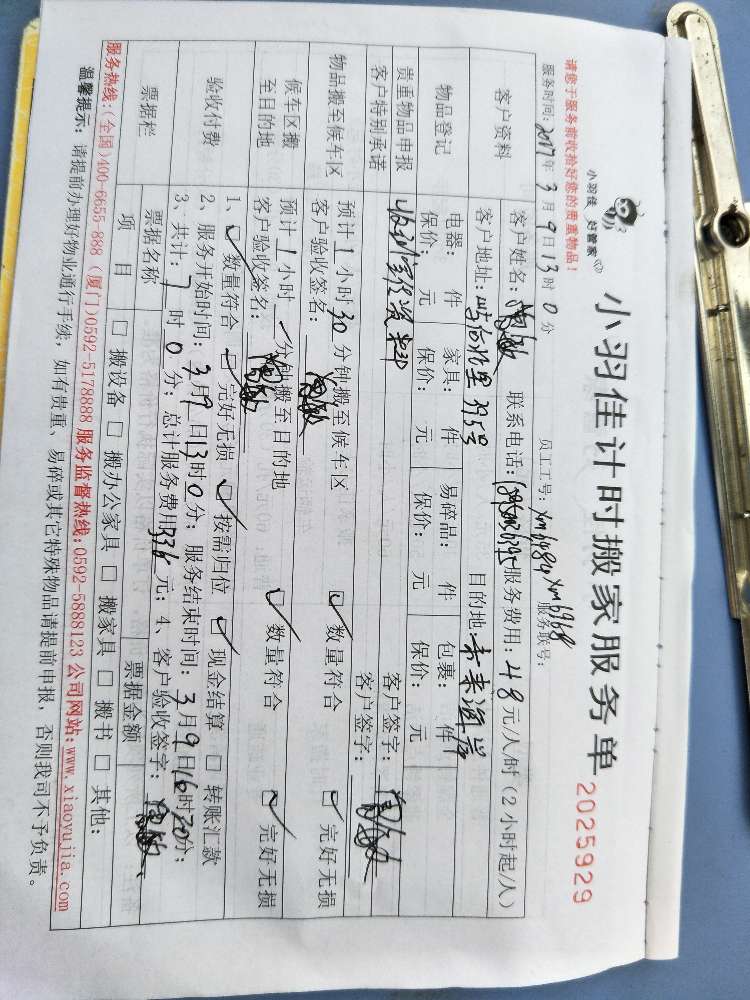 小羽佳 好管家
小羽佳计时搬家服务单
2025929
请您于服务前收拾好您的贵重物品！
服务时间：2017年3月9日13时0分 员工工号：xm6984 xm6968 服务联号：
客户资料
客户姓名： 联系电话： 服务费用：48元/人/时（2小时起/人）
客户地址： 395号 目的地：未来海岸
物品登记
电器： 件 家具： 件 易碎品： 件 包裹： 件
保价： 元 保价： 元 保价： 元 保价： 元
贵重物品申报
客户特别承诺
客户签字：
客户签字：
物品搬至候车区
预计1小时30分钟搬至候车区 数量符合 完好无损
客户验收签名：
候车区搬至目的地
预计1小时 分钟搬至目的地 数量符合 完好无损
客户验收签名：
验收付费
1、 数量符合 完好无损 按需归位 现金结算 转账汇款
2、服务开始时间：3月9日13时0分；服务结束时间：3月9日16时30分；
3、共计：7时0分；总计服务费用336元；4、客户验收签字：
票据栏
票据名称 票据金额
项目 搬设备 搬办公家具 搬家具 搬书 其他：
服务热线：(全国)400-6655-888 (厦门)0592-5178888 服务监督热线：0592-5888123 公司网站：www.xiaoyujia.com
温馨提示：请提前办理好物业通行手续，如有贵重、易碎或其它特殊物品请提前申报，否则我司不予负责。